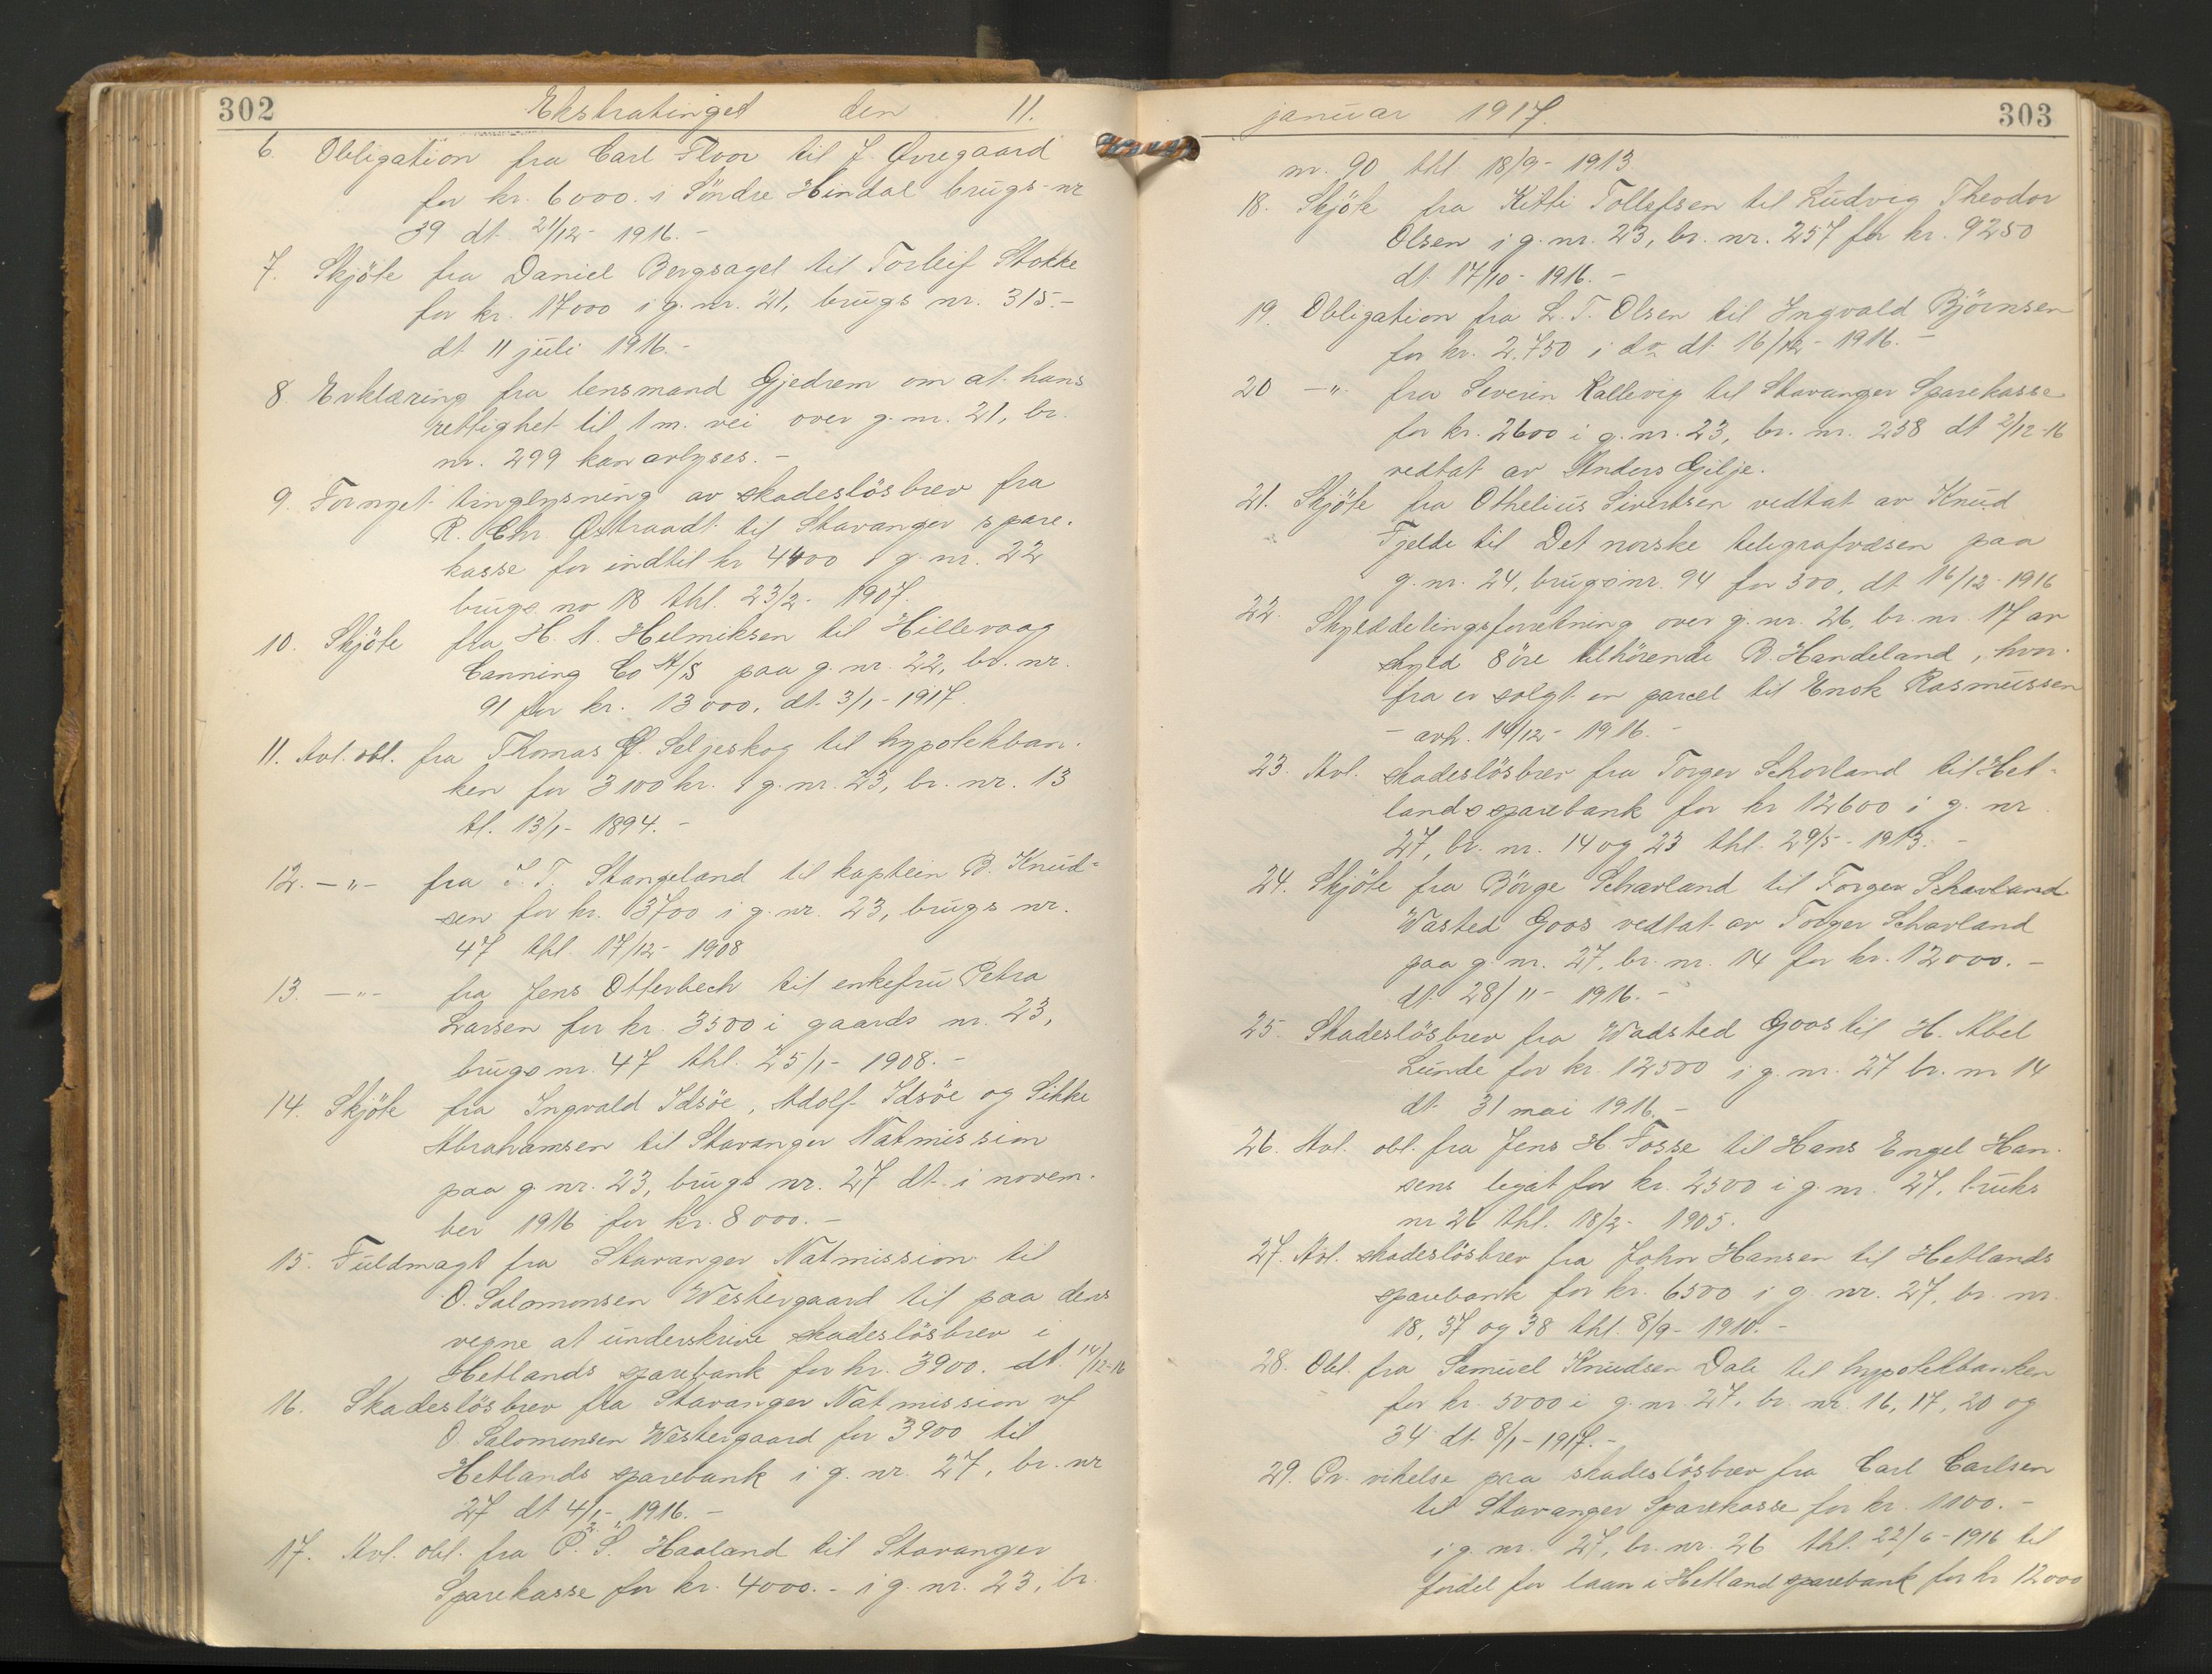 302 Ekstratinget den 11.
6. Obligation fra Carl Floor til J. Øvregaard
for kr. 6000. i Söndre Hindal brugs-nr
39 dt. 21/12- 1916.-
7. Skjöte fra Daniel Bergsagel til Torleif Stokke
for kr. 17000 i g. nr. 21, brugs nr. 315.-
dt 11 juli 1916.-
8 Erklæring fra lensmand Gjedrem om at hans
rettighet til 1 m. vei over g. nr. 21, br.
nr. 299 kan avlyses.-
9. Fornyet tinglysning av skadeslösbrev fra
R. Chr. Østraadt til Stavanger spare-
kasse for indtil kr 4400 i g. nr. 22
brugs no 18 thl. 23/2- 1907.
10. Skjöte fra H. A. Helmiksen til Hillevaag
Canning Co A/S paa g. nr. 22, br. nr.
91 for kr. 13000, dt. 3/1-1917.
11. Avl. obl. fra Thomas G. Seljeskog til hypotekban-
ken for 3100 kr. i g. nr. 23, br. nr. 13
tl. 13/1- 1894.-
12. -"- fra T. T. Stangeland til kaptein B. Knud-
sen for kr. 3700 i g. nr. 23, brugs nr.
47 thl 17/12- 1908
13. -"- fra Jens Otterbech til enkefru Petra
Larsen for kr. 3500 i gaards nr. 23,
brugs nr. 47 thl. 25/1- 1908.-
14. Skjöte fra Ingvald Idsöe, Adolf Idsöe og Sikke
Abrahamsen til Stavanger Natmission
paa g nr. 23, brugs nr. 27 dt. i novem-
ber 1916 for kr. 8000.-
15. Fuldmagt fra Stavanger Natmission til
O. Salomonsen Westergaard til paa dens
vegne at underskrive skadeslösbrev i
Hetlands sparebank for kr. 3900. dt. 14/12-16
16. Skadeslösbrev fra Stavanger Natmission vf
O. Salomonsen Westergaard for 3900 til
Hetlands sparebank i g. nr. 27, br. nr
27 dt 4/1- 1916.-
17. Avl. obl. fra P. S. Haaland til Stavanger
Sparekasse for kr. 4000.- i g. nr. 23, br.
januar 1917. 303
nr. 90 thl 18/9- 1913
18. Skjöte fra Kitti Tollefsen til Ludvig Theodor
Olsen i g. nr. 23, br. nr. 257 for kr. 9250
dt 17/10- 1916.-
19. Obligation fra L. T. Olsen til Ingvald Björnsen
for kr. 2.750 i do dt 16/12- 1916.-
20 -"- fra Severin Kallevig til Stavanger Sparekasse
for kr. 2600 i g. nr. 23, br. nr. 258 dt 2/12-16
vedtat av Anders Gilje.
21. Skjöte fra Othelius Sivertsen vedtat av Knud
Fjelde til Det norske telegrafvæsen paa
g. nr. 24, brugsnr. 94 for 300, dt 16/12-1916
22. Skylddelingsforretning over g. nr. 26, br. nr. 17 av
skyld 8 öre tilhörende B. Handeland, hvor-
fra er solgt en parcel til Enok Rasmussen
- avh. 14/12- 1916.-
23. Avl. skadeslösbrev fra Torger Schorland til Het-
lands sparebank for kr 12600 i g. nr
27, br. nr. 14 og 23 thl. 29/5- 1913.-
24. Skjöte fra Börge Scharland til Torger Scharland
Wasted Goos vedtat av Torger Scharland
paa g. nr. 27, br. nr. 14 for kr. 12000.-
dt 28/11- 1916.-
25. Skadeslösbrev fra Wadsted Goos til H. Abel
Lunde for kr. 12500 i g. nr. 27 br. nr 14
dt 31 mai 1916.-
26. Avl. obl. fra Jens H. Fosse til Hans Engel Han-
sens legat for kr. 2500 i g. nr. 27, bruks
nr 26 thl. 18/2- 1905.
27. Avl. skadeslösbrev fra John Hansen til Hetlands
sparebank for kr. 6500 i g. nr. 27, br. nr.
18, 37 og 38 thl. 8/9- 1910.-
28. Obl. fra Samuel Knudsen Dale til hypotekbanken
for kr. 5000 i g. nr. 27, br. nr. 16, 17, 20 og
34 dt 8/1-1917.-
29. Pr. vikelse paa skadeslösbrev fra Carl Carlsen
til Stavanger Sparekasse for kr. 1100.-
i g. nr. 27, br. nr. 26 thl. 22/6-1916 til
fordel for laan i Hetland sparebank for kr 12000